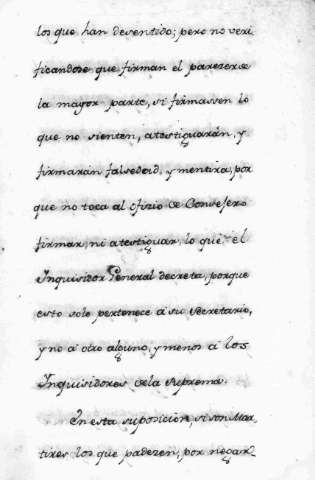 los que han desentido; pero no veri
ficandose que firman el parezer de
la mayor parte, si firmassen lo
que no sienten, atestiguarán, y
firmarán falsedad, y mentira, por
que no toca al ofizio de Consejero
firmar, ni atestiguar lo que el
Inquisidor General decreta, porque
esto solo pertenece á su Secretario,
y no á otro alguno, y menos á los
Inquisidores de la Suprema.
En esta suposicion, si son Mar
tires los que padezen, por negar